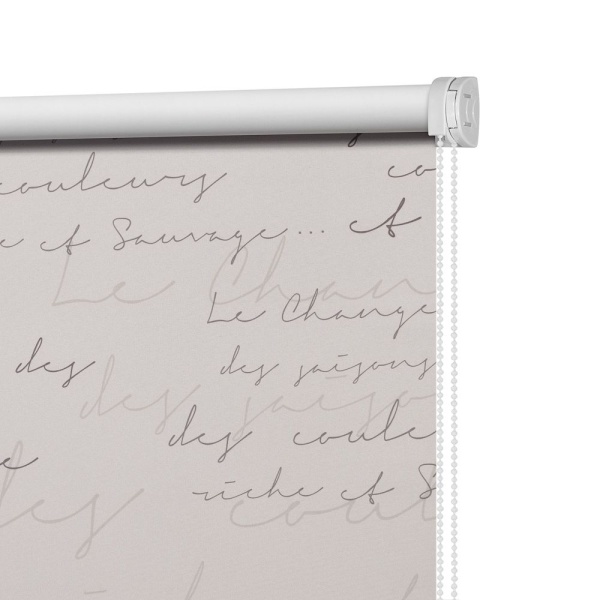 couleurs co
e et Sauvage... et
Le Chan
Le Change
des des saisons
des saiso
des coule
riche et S
des coul